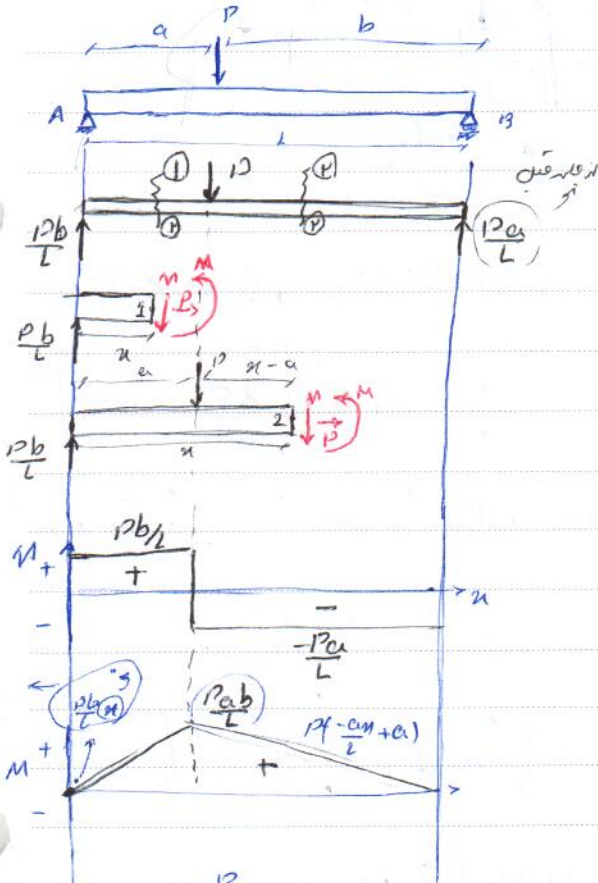 P
a b
A B
L
① P ②
① ②
Pb/L Pa/L
V M
1 P
Pb/L
x
a P x-a
V M
2 P
Pb/L
x
Pb/L
V +
+
x
- -
-Pa/L
Pb/L x
Pab/L
P(-ax/L + a)
+
M +
-
P